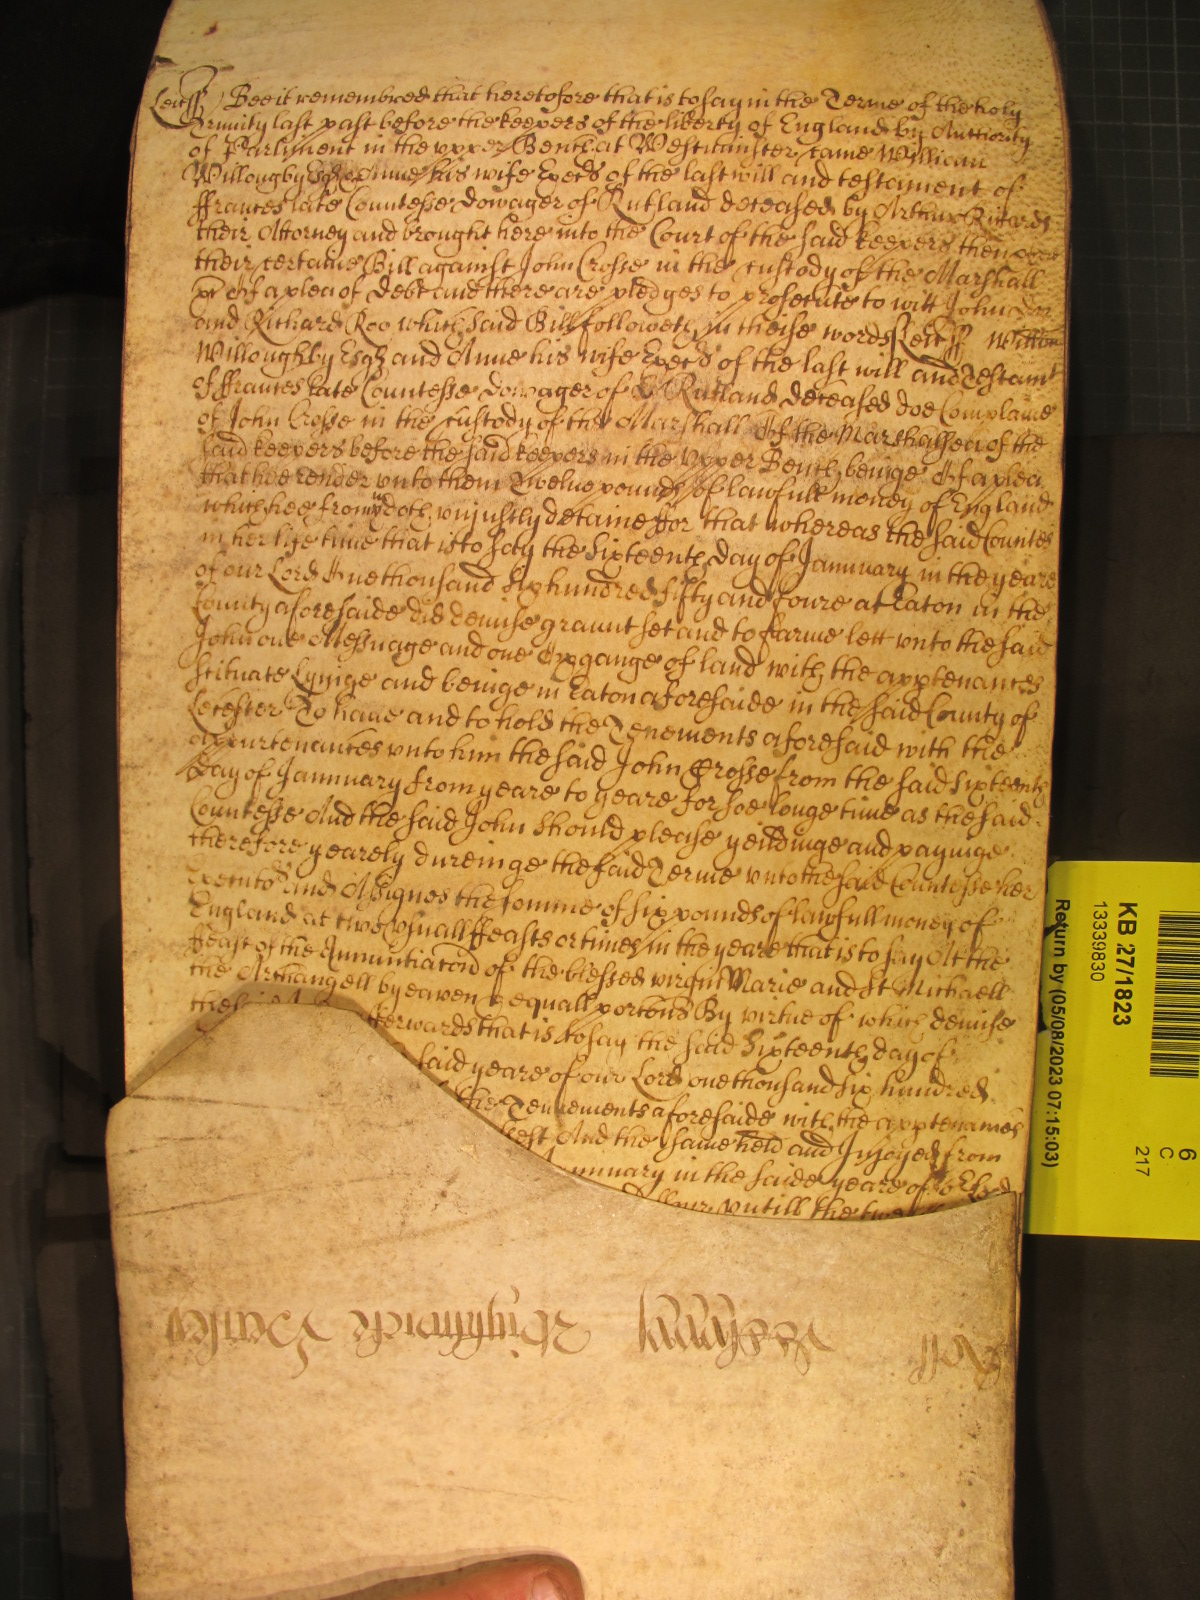 Leic ss Bee it remembred that heretofore that is to say in the Terme of the holy
Trinity last past before the keepers of the liberty of England by Authority
of Parliment in the upper Bench at Westminster came William
Willougby Esqr & Anne his wife Execrs of the last will and testament of
ffrances late Countesse dowager of Rutland deceased by Arthur
their Attorney and brought here into the Court of the said keepers then
their certaine Bill against John Crosse in the custody of the Marshall
&c Of a plea of debt and there are pledges to prosecute to witt John Doe
and Richard Roo which said Bill followeth in theise words Leic ss Willm
Willoughby Esqr and Anne his wife Execrs of the last will and Testamt
of ffrances late Countesse dowager of Rutland deceased doe Complaine
of John Crosse in the custody of the Marshall Of the Marshallsea of the
said keepers before the said keepers in the Upper Bench beinge Of a plea
that hee render unto them Twelve pounds of lawfull money of England
which hee from ym doth unjustly detaine ffor that whereas the said Countes
in her life time that is to say the Sixteenth day of Jannuary in the yeare
of our Lord One thousand six hundred fifty and foure at Eaton in the
County aforesaide did demise graunt set and to farme lett unto the said
John one Messuage and one Oxgange of land with the apptenances
scituate Lyinge and beinge in Eaton aforesaide in the said County of
Leicester To have and to hold the Tenements aforesaid with the
appurtenances unto him the said John Crosse from the said Sixteenth
day of Jannuary from yeare to yeare for soe longe time as the said
Countesse And the said John should please yeildinge and payinge
therefore yearely dureinge the said Terme unto the said Countesse her
Executors and Assignes the somme of six pounds of lawfull money of
England at two usuall ffeasts or times in the yeare that is to say At the
ffeast of the Annunciacon of the blessed virgin Marie and St Michaell
the Archangell by eaven & equall portions By virtue of which demise
the said afterwards that is to say the said Sixteenth day of
said yeare of our Lord one thousand six hundred
the Tenements aforesaide with the apptenances
And the same held and Injoyed from
Jannuary in the saide yeare of
untill the
Roll
KB 27/1823
13339830
Return by (05/08/2023 07:15:03)
6
C
217